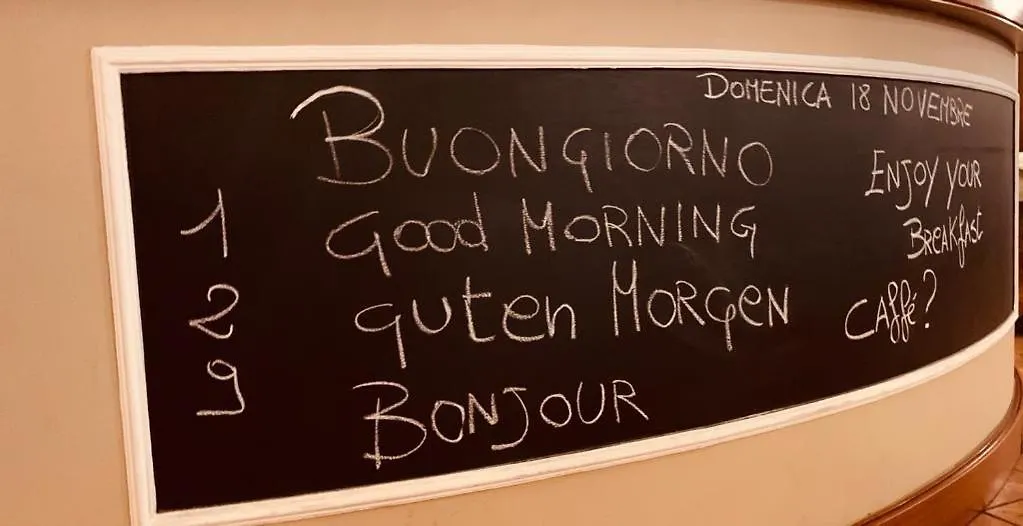 DOMENICA 18 NOVEMBRE
BUONGIORNO
1 GOOD MORNING
2 guten MORGEN
9 BONJOUR
ENJOY YOUR
BREAKfast
CAffé?